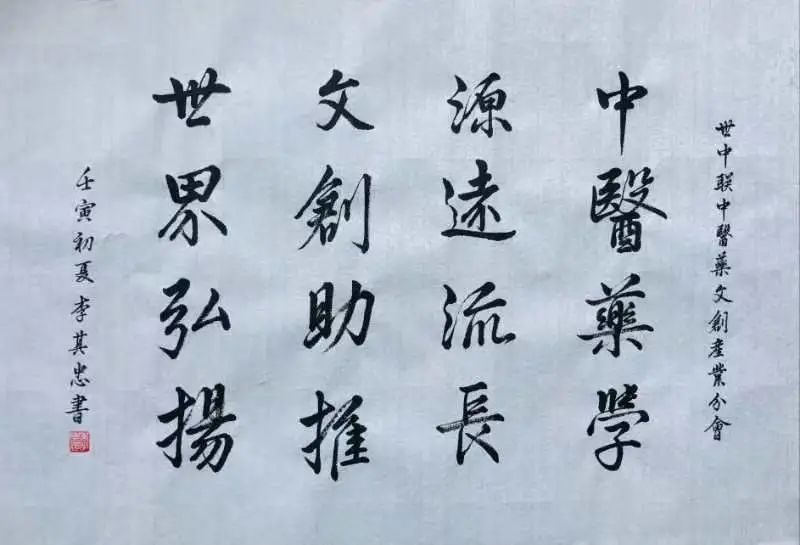 世中联中醫藥文創産業分會
中醫藥学
源遠流長
文創助推
世界弘揚
壬寅初夏李其忠書